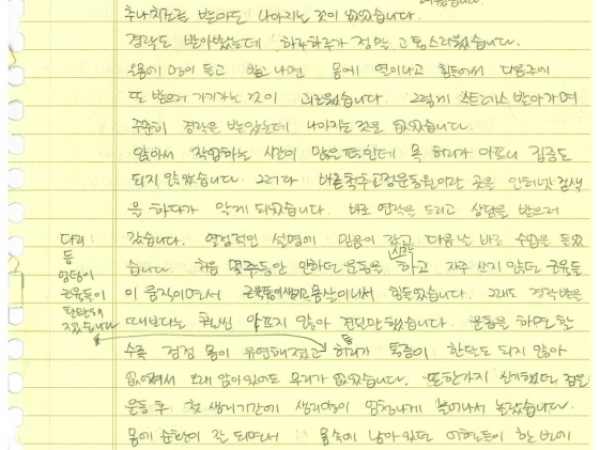 추나치료를 받아도 나아지는 것이 없었습니다.
경락도 받아봤는데 하루하루가 정말 고통스러웠습니다.
온몸에 멍이 들고 받고 나면 몸에 열이나고 힘들어서 다음주에
또 받으러 가기가는 것이 괴로웠습니다. 그렇게 스트레스 받아가며
꾸준히 경락을 받았는데 나아지는 것은 없었습니다.
앉아서 작업하는 시간이 많은편인데 목 허리가 아프니 집중도
되지 않았습니다. 그러다 바른척추교정운동원이란 곳을 인터넷 검색
을 하다가 알게 되었습니다. 바로 연락을 드리고 상담을 받으러
갔습니다. 열정적인 설명에 믿음이 갔고 다음날 바로 수업을 들었
습니다. 처음 몇주동안 안하던 운동을 시작하고 자주 쓰지 않던 근육들
이 움직이면서 근육통이 생기고 몸살이나서 힘들었습니다. 그래도 경락받을
때보다는 훨씬 아프지 않아 견딜만 했습니다. 운동을 하면 할
수록 점점 몸이 유연해졌고 허리 등 통증이 한달도 되지 않아
없어져서 오래 앉아있어도 무리가 없었습니다. 또한가지 신기했던 점은
운동 후 첫 생리기간에 생리양이 엄청나게 늘어나서 놀랐습니다.
몸에 순환이 잘 되면서 몸속에 남아있던 어혈들이 한 번에
다리
등
엉덩이
근육들이
탄탄해
졌습니다